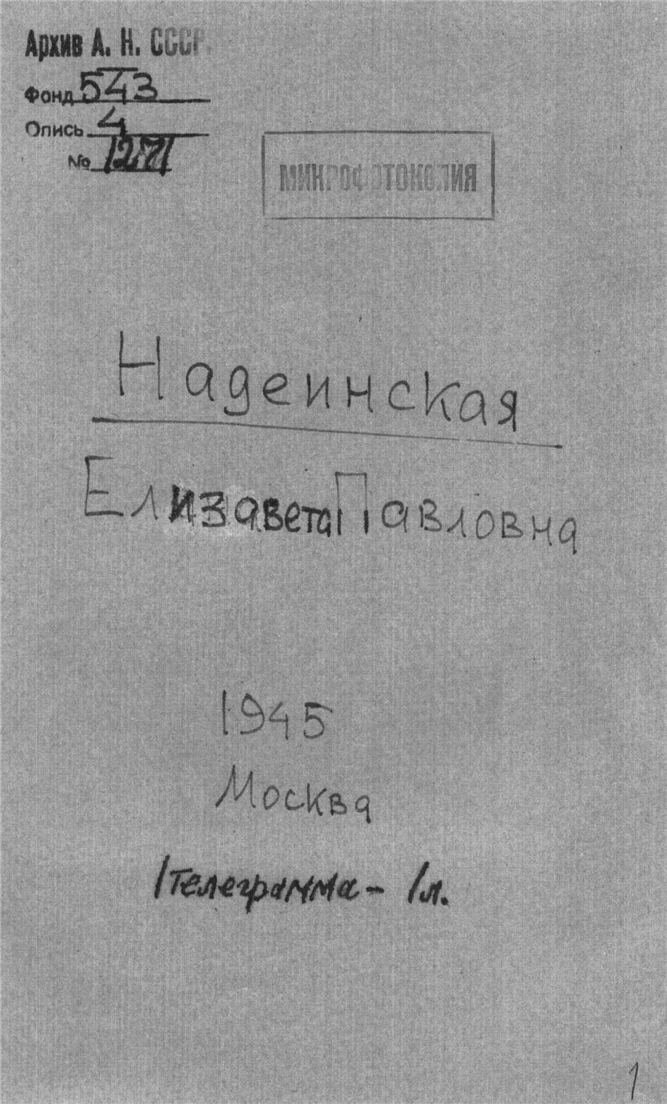 Архив А. Н. СССР.
Фонд 543
Опись 4
№ 1271
МИКРОФОТОКОПИЯ
Надеинская
Елизавета Павловна
1945
Москва
1 телеграмма – 1 л.
1